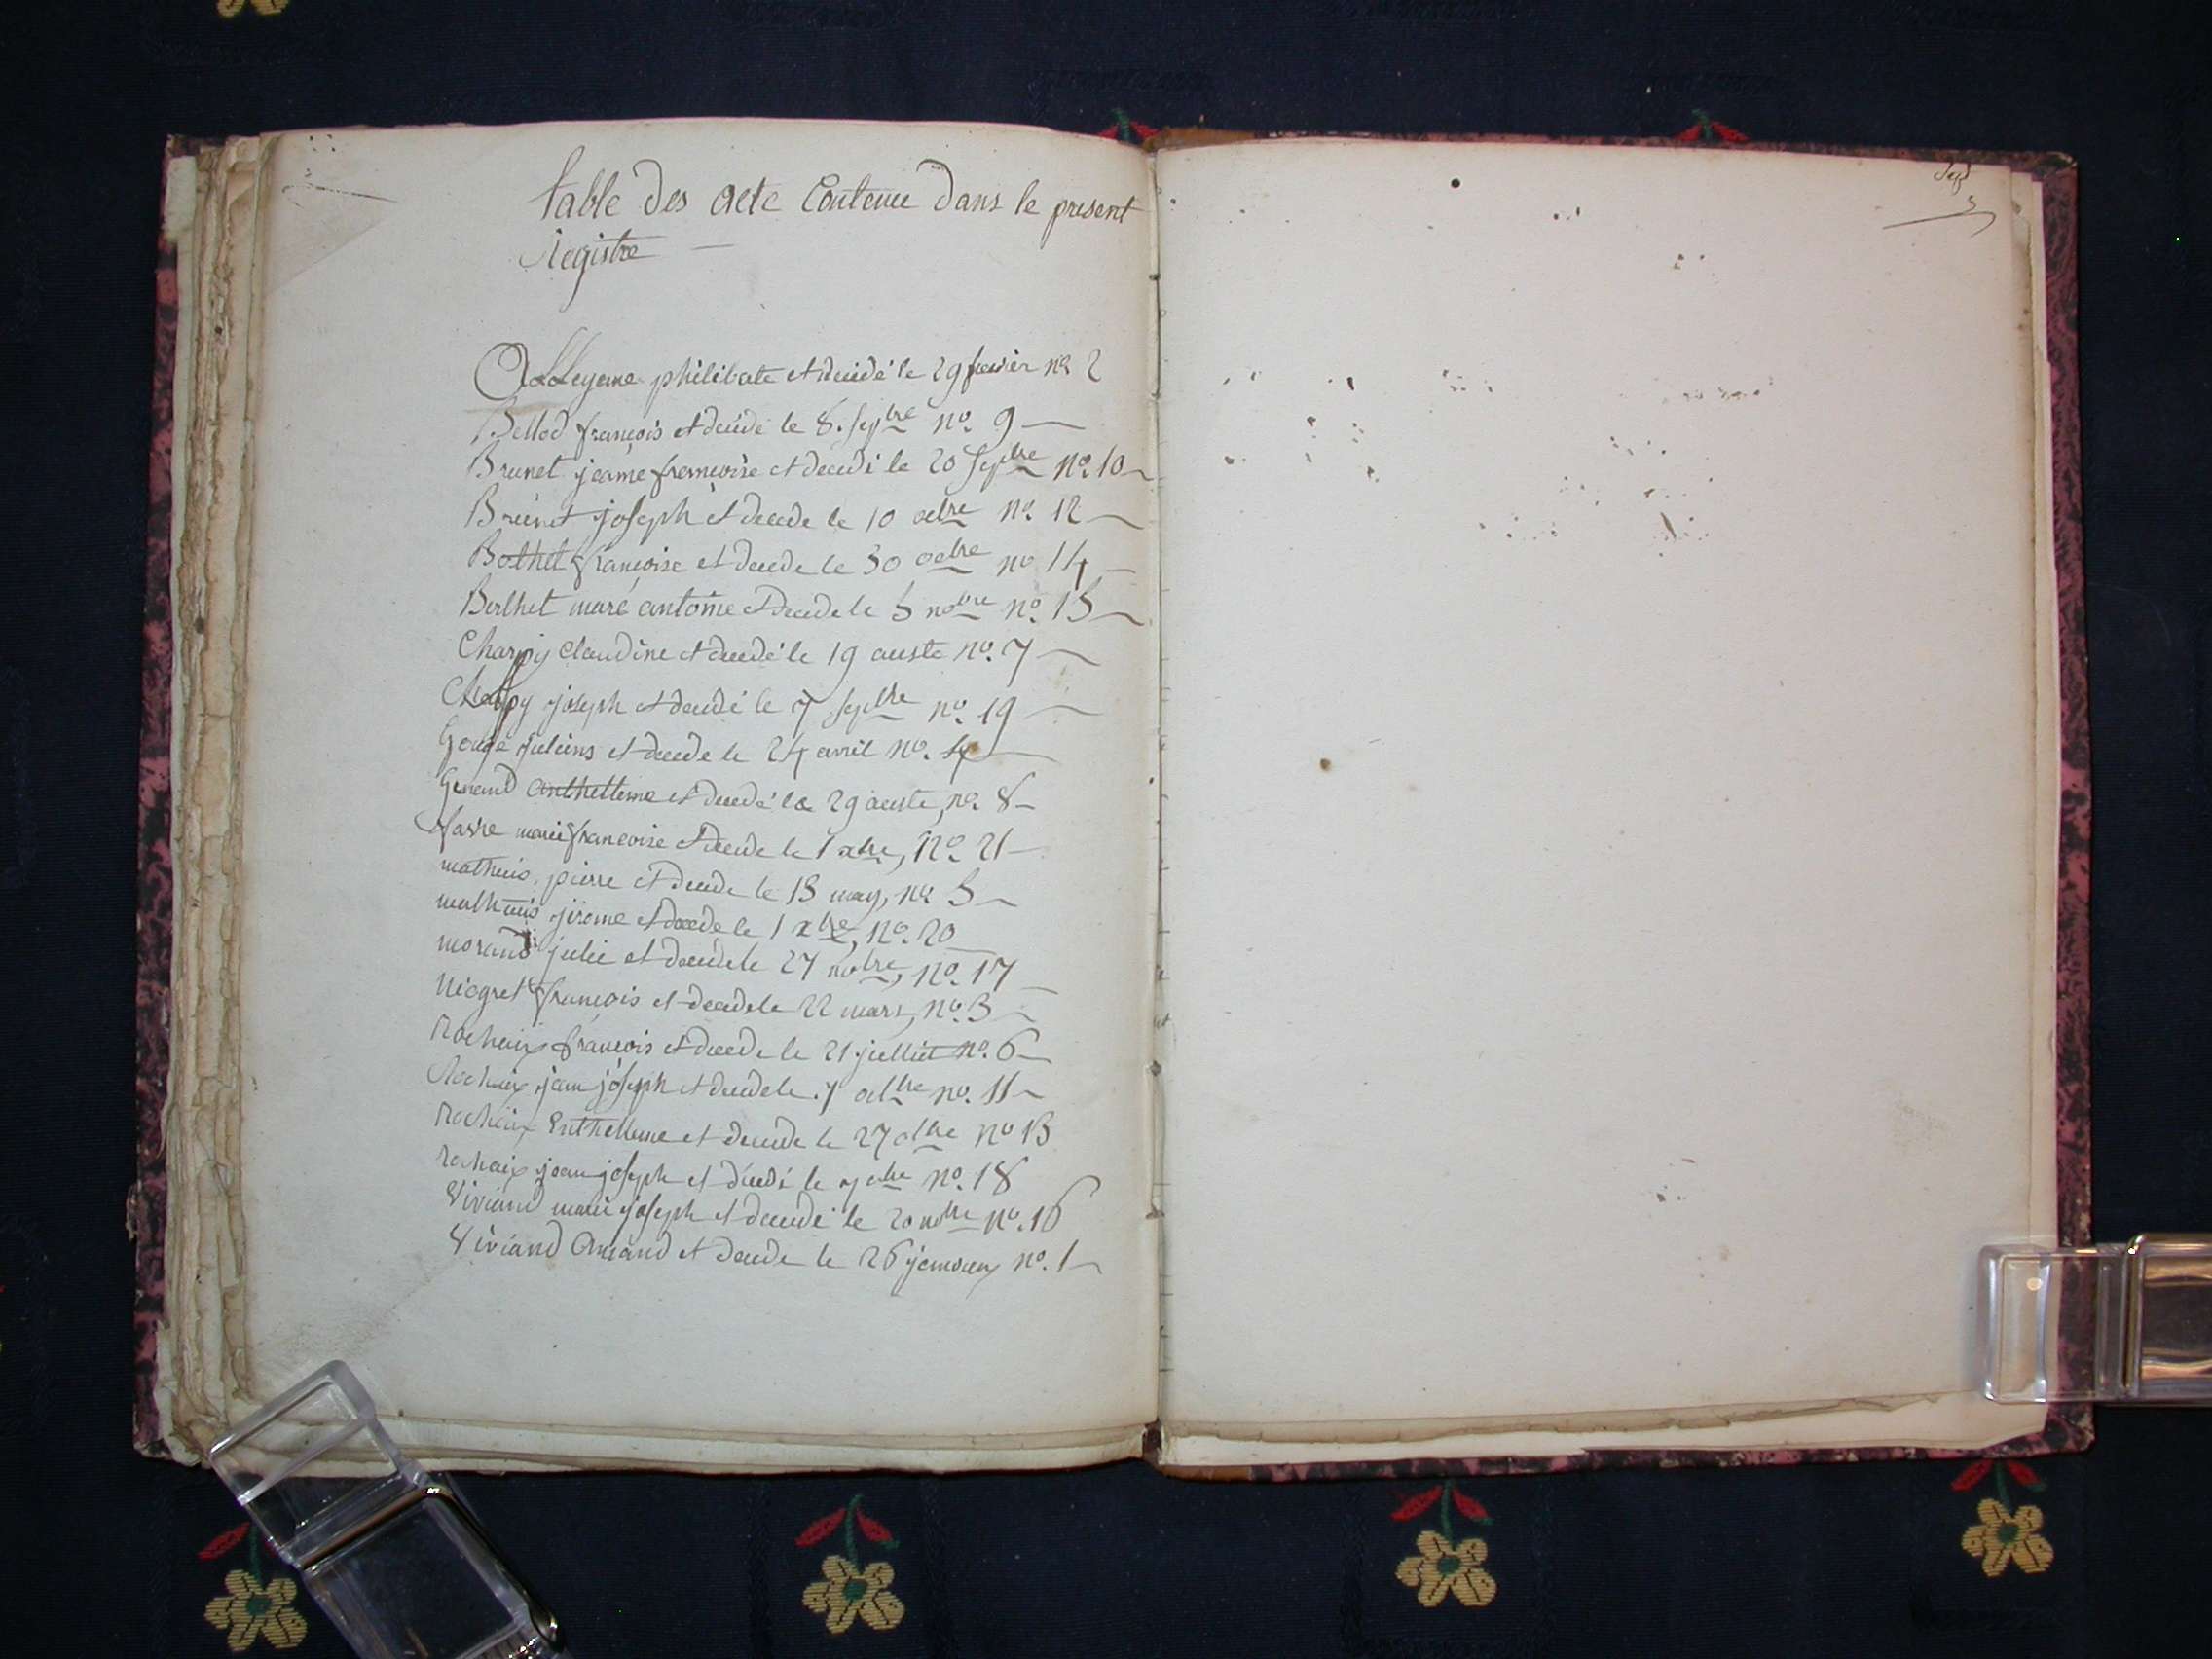 table des acte Contenue dans le present
Registre
philibate et décidé le 29 fevrier no 2
Bellod françois et décédé le 8 septbre no. 9
Brunet jeanne françoise et decedé le 20 septbre no. 10
Brunet joseph et decede le 10 octbre no. 12
Bothet françoise et decede le 30 octbre no 14
Berthet marê antoine et decede le 5 novbre no. 15
Charpy Claudine et decedé le 19 auste no. 7
Charpy joseph et decedé le 7 septbre no. 19
Gouge et decede le 24 avril no. 4
Genand anthelleme et decedé le 29 auste, no. 8
favre marie françoise et decede le 1 xbre, no. 21
mathieis pierre et decede le 13 may, no. 5
mathieis jerome et decede le 1 xbre, no. 20
morand julie et decede le 27 novbre, no. 17
Niogret françois et decede le 22 mars, no. 3
Rochaix françois et decede le 21 julliet no. 6
Rochaix jean joseph et decede le 7 octbre no. 11
Rochaix Enthelleme et decede le 27 octbre no 13
rochaix jean joseph et décédé le no. 18
Viviand marie joseph et decede le 20 novbre no. 16
Viviand Amand et decede le 26 no. 1